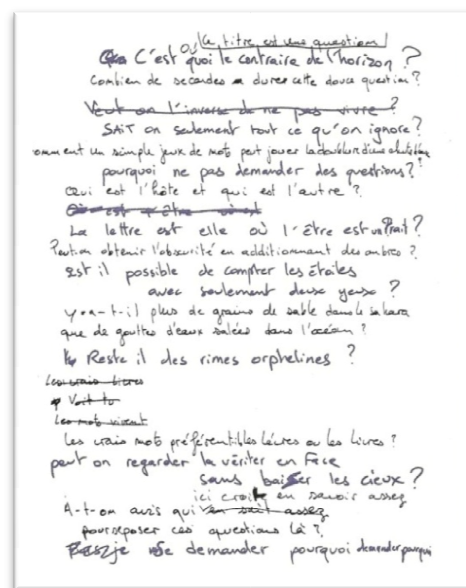 Où (Le titre est une question)
C'est quoi le contraire de l'horizon ?
Combien de secondes a durer cette douce question ?
Veut on l'inverse de ne pas vivre ?
SAIT on seulement tout ce qu'on ignore ?
omment un simple jeux de mots peut jouer la doublure d'une
pourquoi ne pas demander des questions ?
Qui est l'hôte et qui est l'autre ?
Où est
La lettre est elle où l'être est un
Peut on obtenir l'obscurité en additionnant des ombres ?
Est il possible de compter les étoiles
avec seulement deux yeux ?
y-a-t-il plus de grains de sable dans le sahara
que de gouttes d'eaux salées dans l'océan ?
Reste il des rimes orphelines ?
Les vrais livres
Voit tu
Les mots vivent
Les vrais mots préfèrent ibles lèvres ou les livres ?
peut on regarder la vériter en Face
sans baisser les cieux ?
ici croit en savoir assez
A-t-on avis qui en sait assez
pour reposer ces questions là ?
je me demander pourquoi demander pourquoi